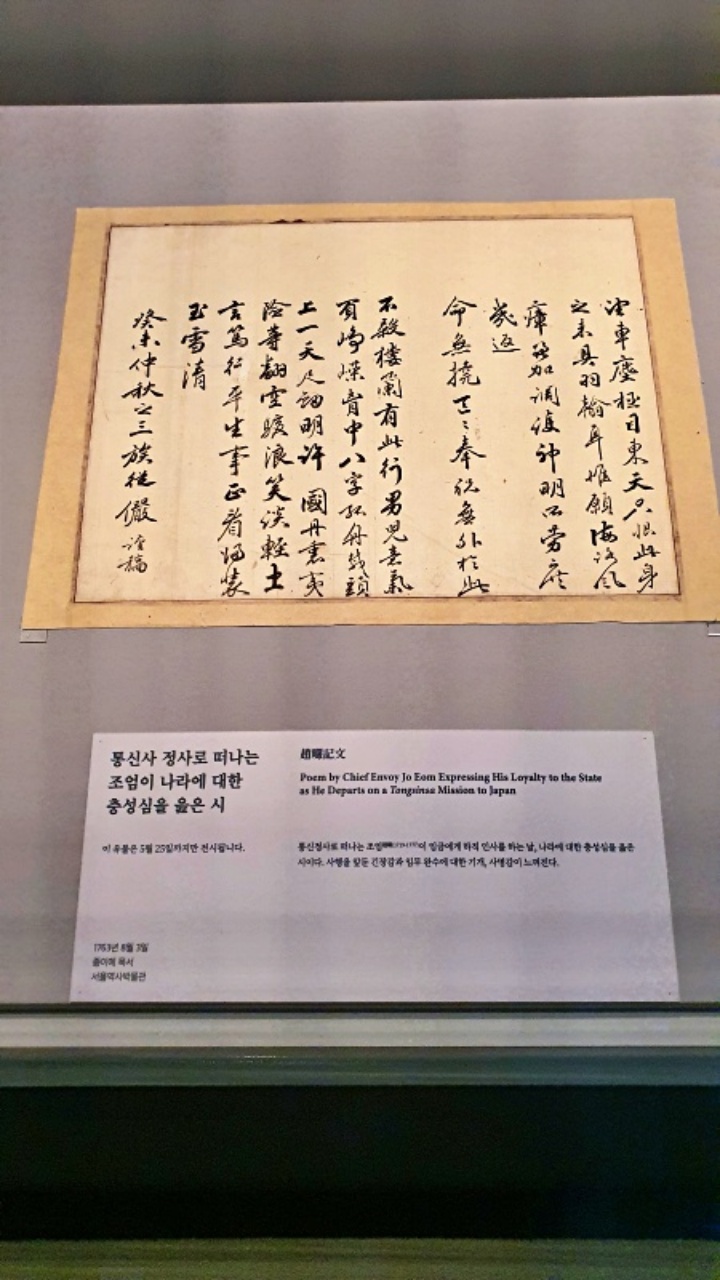 望車塵極目東天只恨此身
之未具羽翰耳惟願海路風
加調神明所勞
返
命無撓奉祝無外於此
不殺樓蘭有此行男兒意氣
崢嶸中八字頭
上一天明許國丹衷夷
險等翻空駭浪笑談輕土
言篤行平生事正看歸裝
玉雪清
癸未仲秋之三族從儼謹稿
통신사 정사로 떠나는
조엄이 나라에 대한
충성심을 읊은 시
이 유물은 5월 25일까지만 전시됩니다.
1763년 8월 3일
종이에 묵서
서울역사박물관
趙曮記文
Poem by Chief Envoy Jo Eom Expressing His Loyalty to the State
as He Departs on a Tongsinsa Mission to Japan
통신정사로 떠나는 조엄이 임금에게 하직 인사를 하는 날, 나라에 대한 충성심을 읊은
시이다. 사행을 앞둔 긴장감과 임무 완수에 대한 기개, 사명감이 느껴진다.